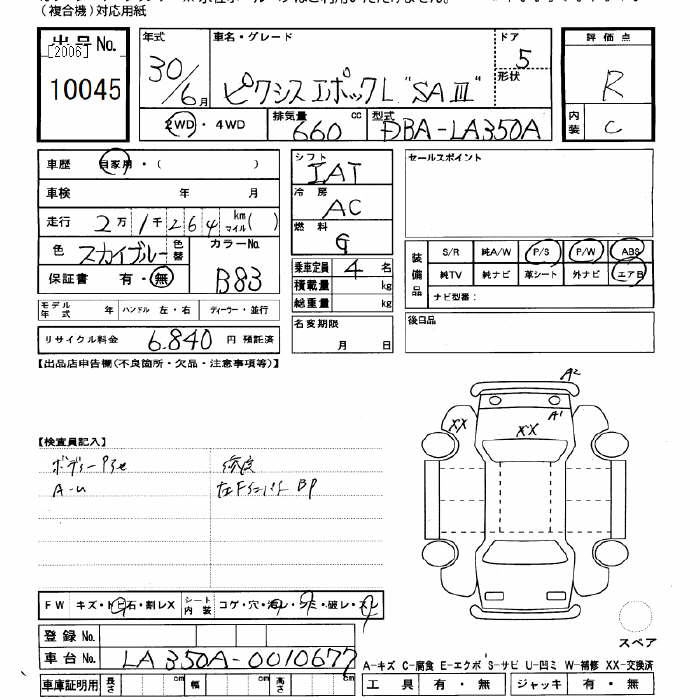 (複合機)対応用紙
出品No. 年式 車名・グレード ドア 評価点
[2006] 30/6月 ピクシスエポックL "SAⅢ" 5 R
10045 形状
2WD・4WD 排気量 660 cc 型式 DBA-LA350A 内装 C
車歴 自家用・( ) シフト IAT セールスポイント
車検 年 月 冷房 AC
走行 2万1千264 km マイル( ) 燃料 G
色 スカイブルー 色替 カラーNo. B83 装備品 S/R 純A/W P/S P/W ABS
保証書 有・無 乗車定員 4名 純TV 純ナビ 革シート 外ナビ エアB
積載量 kg ナビ型番:
モデル年式 年 ハンドル 左・右 ディーラー・並行 総重量 kg
リサイクル料金 6.840 円 預託済 名変期限 月 日 後日品
【出品店申告欄(不良箇所・欠品・注意事項等)】
A2
A1
XX XX
【検査員記入】
ボディー
A-U
BP
FW キズ・トビ石・割レX シート内装 コゲ・穴・汚レ・シミ・破レ・スレ
登録No.
スペア
車台No. LA350A-0010677
A-キズ C-腐食 E-エクボ S-サビ U-凹ミ W-補修 XX-交換済
車庫証明用 長さ cm 幅 cm 高さ cm 工具 有・無 ジャッキ 有・無